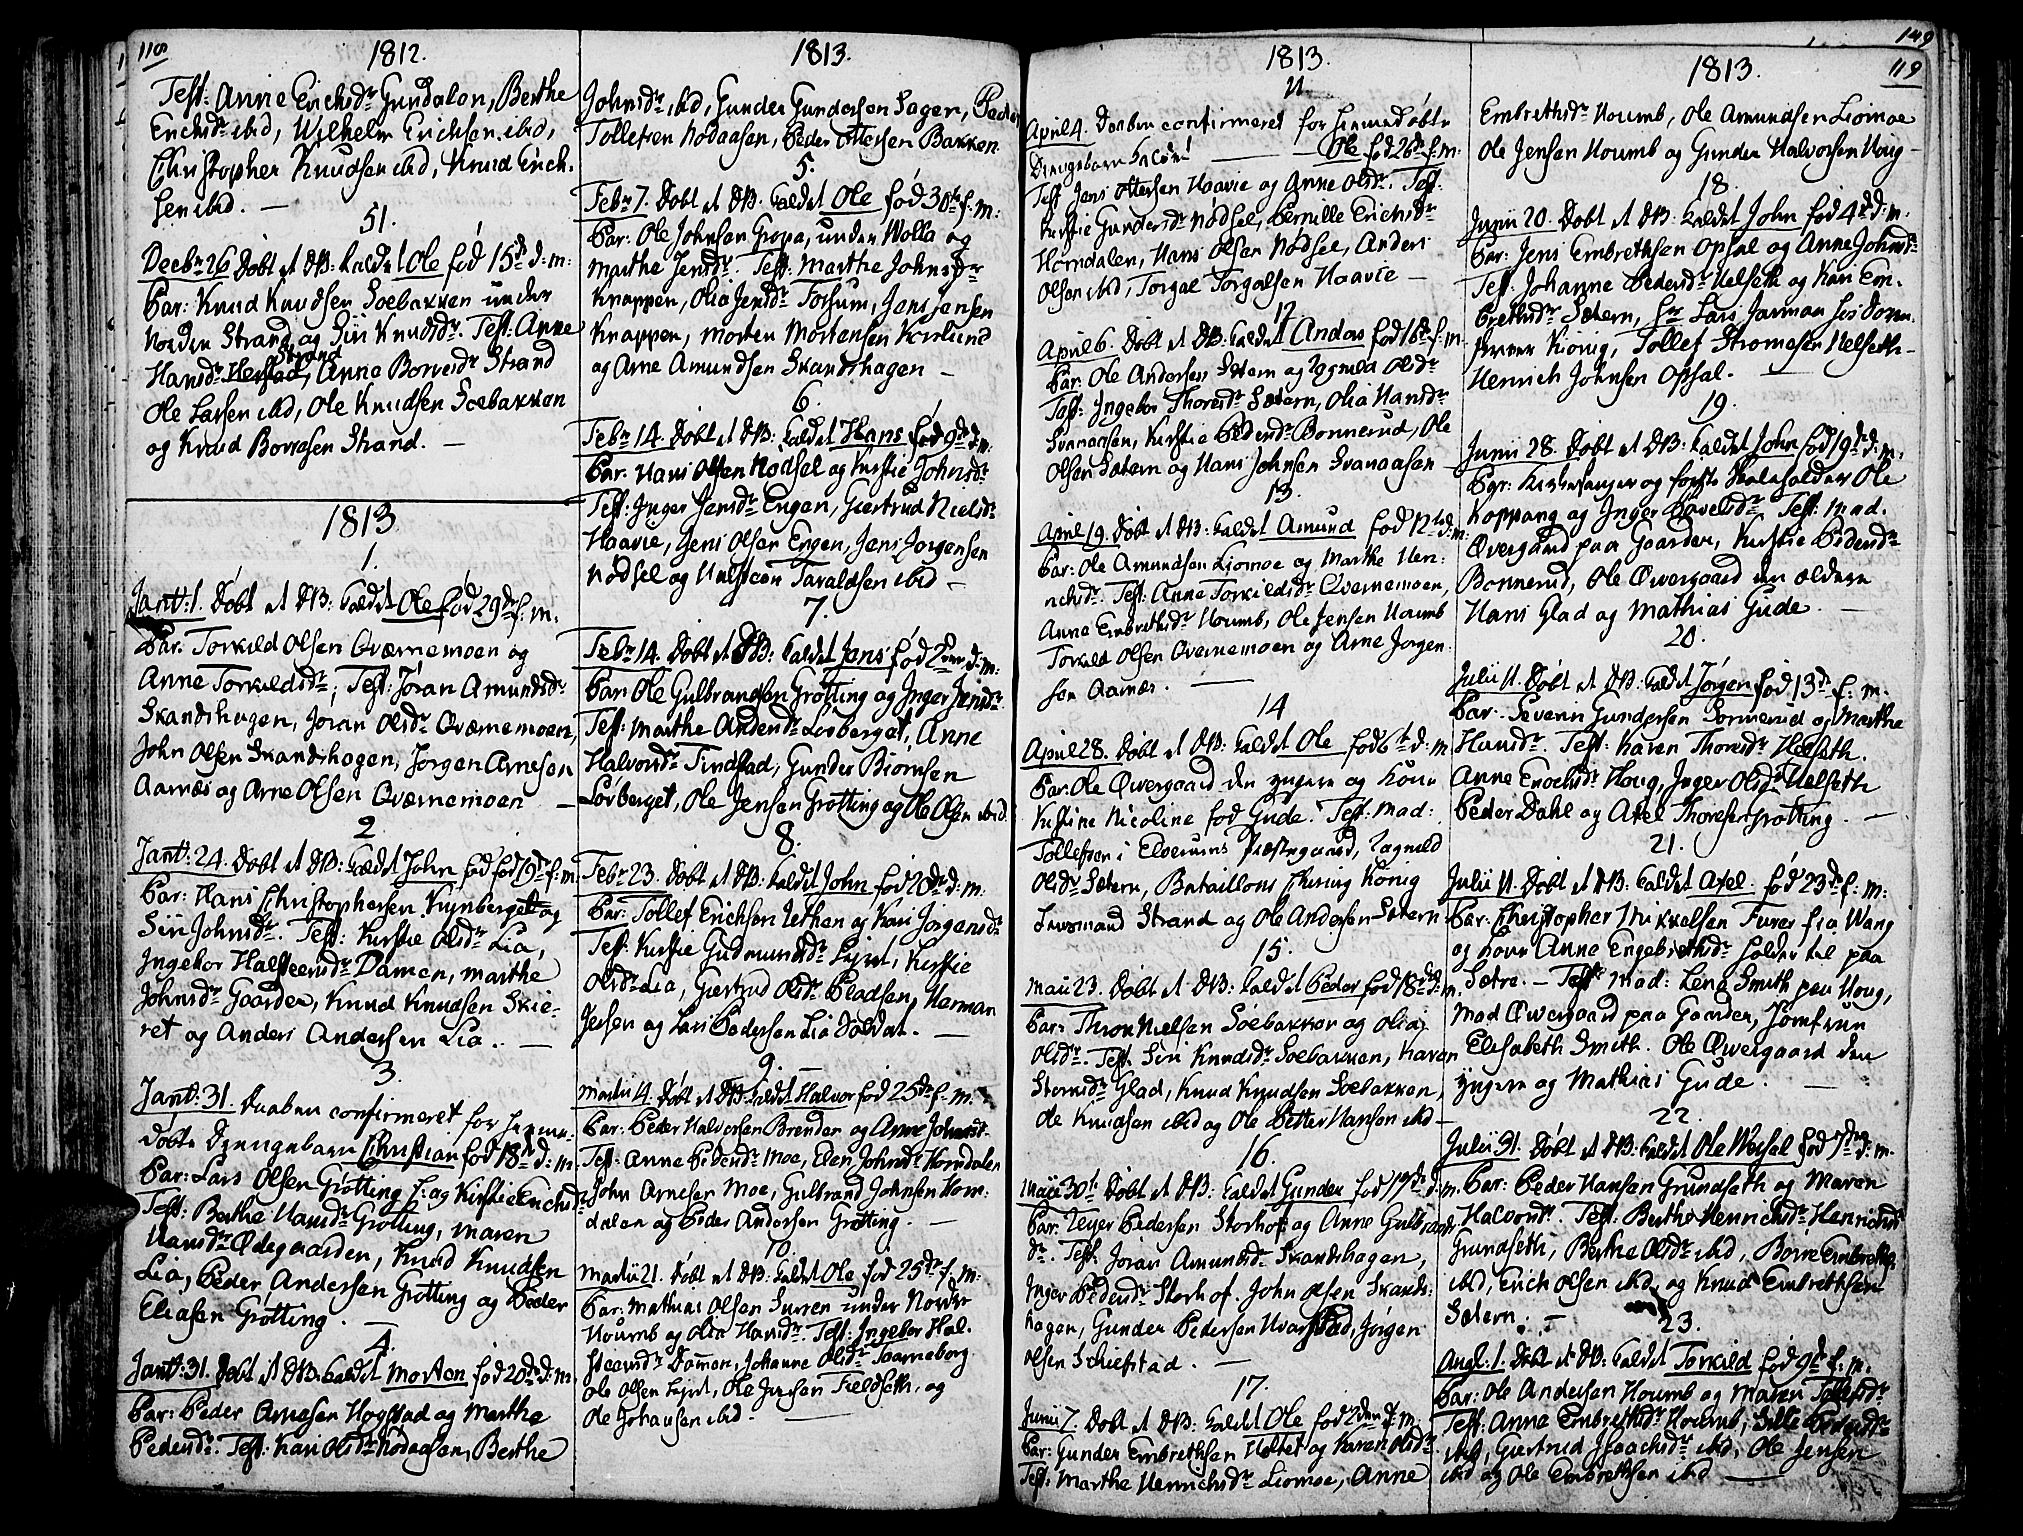 118
1812.
Test: Anne Erichsdr Gundalon, Berthe
Erichsdr ibid, Wilhelm Erichsen ibid,
Christopher Knudsen ibid, Knud Erich-
sen ibid. —
51.
Decbr 26 Døbt et DB: kaldet Ole fød 15d d: m:
Par: Knud Knudsen Soebakken under
Norden Strand og Siri Knudsdr. Test: Anne
Strand
Hansdr Herstad, Anne Borresdr Strand
Ole Larsen ibd, Ole Knudsen Soebakken
og Knud Borresen Strand. —
1813.
1.
Jantt: 1. Døbt et DB: kaldet Ole fød 29de f: m.
Par: Torkild Olsen Qværnemoen og
Anne Torkildsdr; Test: Jøran Amundsdr
Skandshagen, Jøran Olsdr Qværnemoen,
John Olsen Skandshagen, Jørgen Arnesen
Aarnæs og Arne Olsen Qværnemoen —
2
Jantt: 24. Døbt et DB: kaldet John fød fød 19de f: m.
Par: Hans Christophersen Kynberget og
Siri Johnsdr. Test: Kirstie Olsdr Lia,
Ingebor Halsteensdr Damen, Marthe
Johnsdr Gaarder, Knud Knudsen Skie-
ret og Anders Andersen Lia. —
3.
Jantt: 31. Daaben confirmeret for hjemme-
døbte Drengebarn Christian fød 18de d: m.
Par: Lars Olsen Grøtting og Kirstie Erichsdr
Test: Berthe Hansdr Grøtting, Maren
Hansdr Ødegaarden, Knud Knudsen
Lia, Peder Andersen Grøtting og Peder
Eliasen Grøtting. —
4.
Jantt: 31. Døbt et DB: kaldet Morten fød 20de d: m.
Par: Peder Arnesen Hogstad og Marthe
Pedersdr. Test: Kari Olsdr Nodaasen, Berthe
1813.
Johnsdr ibid, Gunder Gundersen Sager, Peder
Tollefsen Nodaasen, Peder Ottersen Bakken
5.
Febr 7. Døbt et DB: kaldet Ole fød 30te f: m:
Par: Ole Johnsen Gropa, under Wolla og
Marthe Jensdr. Test: Marthe Johnsdr
Knappen, Olia Jensdr Fossum, Jens Jensen
Knappen, Morten Mortensen
og Arne Amundsen Skandshagen —
6.
Febr 14. Døbt et DB: kaldet Hans fød 9de d: m.
Par: Hans Olsen Nodsel og Kirstie Johnsdr
Test: Inger Jensdr Engen, Giertrud Nielsdr
Haavie, Jens Olsen Engen, Jens Jørgensen
Nødsel og Halsteen Taraldsen ibid —
7.
Febr 14. Døbt et DB: kaldet Jens fød 2den d: m:
Par: Ole Gulbrandsen Grøtting og Inger Jensdr
Test: Marthe Andersdr Løvberget, Anne
Halvorsdr Tindstad, Gunder Biørnsen
Løvberget, Ole Jensen Grøtting og Ole Olsen ibid.
8.
Febr 23. Døbt et DB: kaldet John fød 20de d: m.
Par: Tollef Erichsen Lethen og Kari Jørgensdr
Test: Kirstie Gudmundsdr Lyset, Kirstie
Olsdr Lia, Giertrud Olsdr Pladsen, Herman
Jensen og Lars Pedersen Lia Soldat. —
9. —
Martii 4. Døbt et DB: kaldet Halvor fød 25de f: m.
Par: Peder Halvorsen Brenden og Anne Johansdr
Test: Anne Pedersdr Moe, Elen Johnsdr Horndalen
John Arnesen Moe, Gulbrand Johnsen Horn-
dalen og Peder Andersen Grøtting. —
10.
Martii 21. Døbt et DB: kaldet Ole fød 25de f: m:
Par: Mathias Olsen Surren under Nordre
Houmb og Olia Hansdr. Test: Ingebor Hal-
steensdr Damen, Johanne Olsdr Taarneborg
Ole Olsen Lyset, Ole Jensen Fieldseth, og
Ole Johansen ibid. —
1813.
11
April 4. Daaben confirmeret for hjemmedøbte
Drengebarn kaldet — Ole fød 26de f: m.
Test Jens Ottersen Haavie og Anne Olsdr. Test:
Kirstie Gundersdr Nødsel, Pernille Erichsdr
Horndalen, Hans Olsen Nødsel, Anders
Olsen ibid, Torgal Torgalsen Haavie —
12
April 6. Døbt et DB: kaldet Andas fød 16de f: m.
Par: Ole Andersen Sætern og Ragnild Olsdr
Test: Ingebor Thoresdr Sætern, Olia Hansdr
Svenaasen, Kirstie Pedersdr Bonnerud, Ole
Olsen Sætern og Hans Johnsen Svenaasen —
13.
April 19. Døbt et DB: kaldet Amund fød 12te d: m
Par: Ole Amundsen Liomoe og Marthe Hen-
richsdr. Test: Anne Torkildsdr Qvernemoen,
Anne Embrethsdr Houmb, Ole Jensen Houmb
Torkild Olsen Qvernemoen og Arne Jørgen-
sen Aarnæs. —
14
April 28. Døbt et DB: kaldet Ole fød 6te d: m
Par: Ole Øwergaard den yngere og Kone
Kistine Nicoline fød Gude. Test: Mad:
Tollefsen i Elverums Præstegaard, Ragnild
Olsdr Sætern, Bataillons Chirurg König
Lensmand Strand og Ole Andersen Sætern
15.
Maii 23. Døbt et DB: kaldet Peder fød 18de d: m.
Par: Thron Nielsen Soebakken og Olia
Olsdr. Test. Siri Knudsdr Soebakken, Karen
Storesdr Glad, Knud Knudsen Soebakken,
Ole Knudsen ibid og Ole Petter Hansen ibid —
16.
Maii 30te Døbt et DB: kaldet Gunder fød 19de d: m.
Par: Reyer Pedersen Storhof og Anne Gulbrands-
dr. Test. Jøran Amundsdr Skandshagen,
Inger Pedersdr Storhof. John Olsen Skands-
hagen, Gunder Pedersen Hvarstad, Jørgen
Olsen Schiefstad. —
17.
Junii 7. Døbt et DB: kaldet Ole fød 2den d: m.
Par: Gunder Embrethsen Holtet og Karen Olsdr.
Test: Marthe Henrichsdr Liomoe, Anne
149
119
1813.
Embrethsdr Houmb, Ole Amundsen Liomoe
Ole Jensen Houmb og Gunder Halvorsen Houg —
18.
Junii 20. Døbt et DB: kaldet John fød 4de d: m.
Par: Jens Embrethsen Opsal og Anne Johnsdr
Test: Johanne Pedersdr Helseth og Kari Em-
brethsdr Sætern, Hr Lars
König, Tollef Thomesen Helseth —
Henrich Johnsen Opsal. —
19.
Junii 28. Døbt et DB: kaldet John fød 19de d: m.
Par: Kirkesanger og første Skoleholder Ole
Koppang og Inger Povelsdr Test: Mad.
Øwergaard paa Gaarder, Kirstie Pedersdr
Bonnerud, Ole Øwergaard den ældere
Hans Glad og Mathias Gude. —
20.
Julii 11. Døbt et DB. kaldet Jørgen fød 13de f: m.
Par: Severin Gundersen Sormerud og Marthe
Hansdr. Test: Karen Thoresdr Helseth.
Anne Enochsdr Houg, Inger Olsdr Helseth
Peder Dahl og Axel Thoresen Grøtting. —
21.
Julii 11. Døbt et DB: kaldet Axel fød 23de f: m:
Par: Christopher Mikkelsen Furer fra Wang
og Kone Anne Engebrethsdr holder til paa
Sætre. — Test Mad: Lena Smith paa Houg,
Mad Øwergaard paa Gaarder, Jomfruen
Elisabeth Smith. Ole Øwergaard den
yngere og Mathias Gude. —
22.
Julii 31. Døbt et DB: kaldet Ole Wessel fød 7de d: m.
Par: Peder Hansen Grundseth og Maren
Halvorsdr. Test: Berthe Henrichsdr Henrichsdr
Grundseth, Berthe Olsdr ibid, Børre Embrethsen
ibid, Erich Olsen ibid, og Knud Embrethsen
Sætern. —
23.
Augt: 1. Døbt et DB: kaldet Torkild fød 9de f: m.
Par: Ole Andersen Houmb og Maren Tollefsdr
Test: Anne Embrethsdr Houmb, Sille Pedersdr
ibid, Giertrud Isaachsdr ibid, Ole Jensen
ibid og Ole Embrethsen ibid —